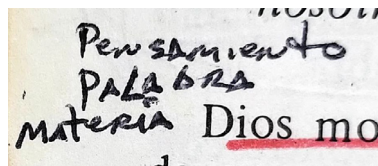 Pensamiento
PALABRA
materia Dios mo